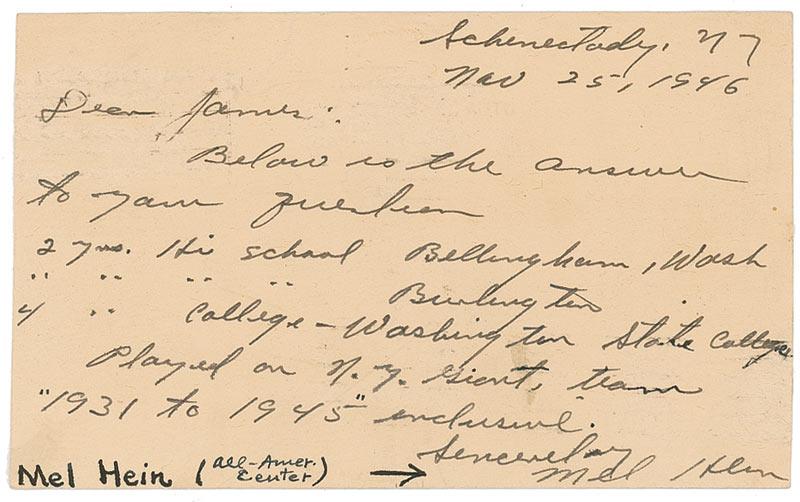 Schenectady, N Y
Nov 25, 1946
Dear James:
Below is the answer
to your question
2 yrs. Hi school Bellingham, Wash
" " " " Burlington "
4 " College - Washington State College
Played on N.Y. Giant, team
"1931 to 1945" inclusive.
Sincerely
Mel Hein
Mel Hein (All-Amer. Center) →